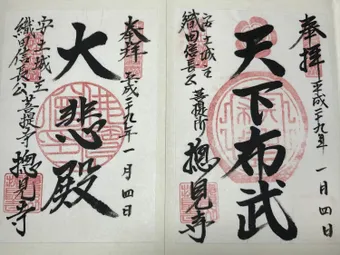 奉拝 平成二十九年 一月四日
天下布武
安土城主
織田信長公 菩提所 摠見寺
奉拝 平成二十九年 一月四日
大悲殿
安土城主
織田信長公菩提寺 摠見寺